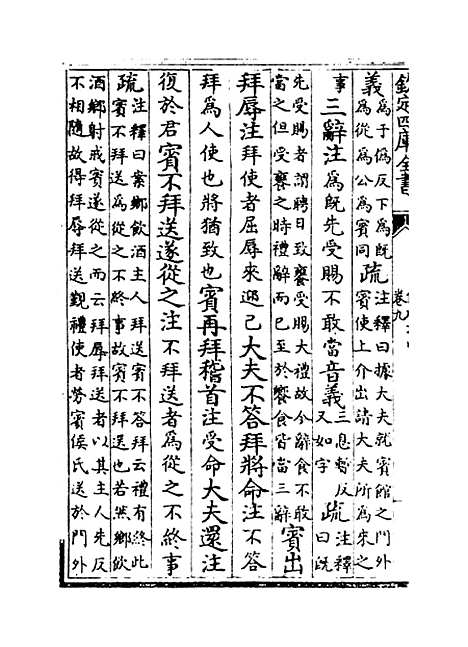 欽定四庫全書
卷九
義為于偽反下為既
為從為公為賓同
疏注釋曰據大夫就賓館之門外
賓使上介出請大夫所為來之
事三辭注為既先受賜不敢當音義三息暫反
又如字
疏注釋
曰既
先受賜者謂聘日致饔受賜大禮故今辭食不敢
當之但受饔之時禮辭而已至於饗食皆當三辭
賓出
拜辱注拜使者屈辱來迎己大夫不答拜將命注不答
拜為人使也將猶致也賓再拜稽首注受命大夫還注
復於君賓不拜送遂從之注不拜送者為從之不終事
疏注釋曰案鄉飲酒主人拜送賓不答拜云禮有終此
賓不拜送為從之不終事故賓不拜送也若然鄉飲
酒鄉射戒賓遂從之而云拜辱拜送者以其主人先反
不相隨故得拜辱拜送覲禮使者勞賓侯氏送於門外